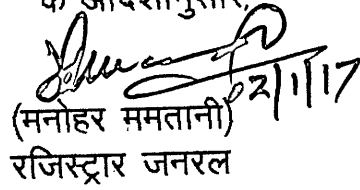 के आदेशानुसार,
02/1/17
(मनोहर ममतानी)
रजिस्ट्रार जनरल